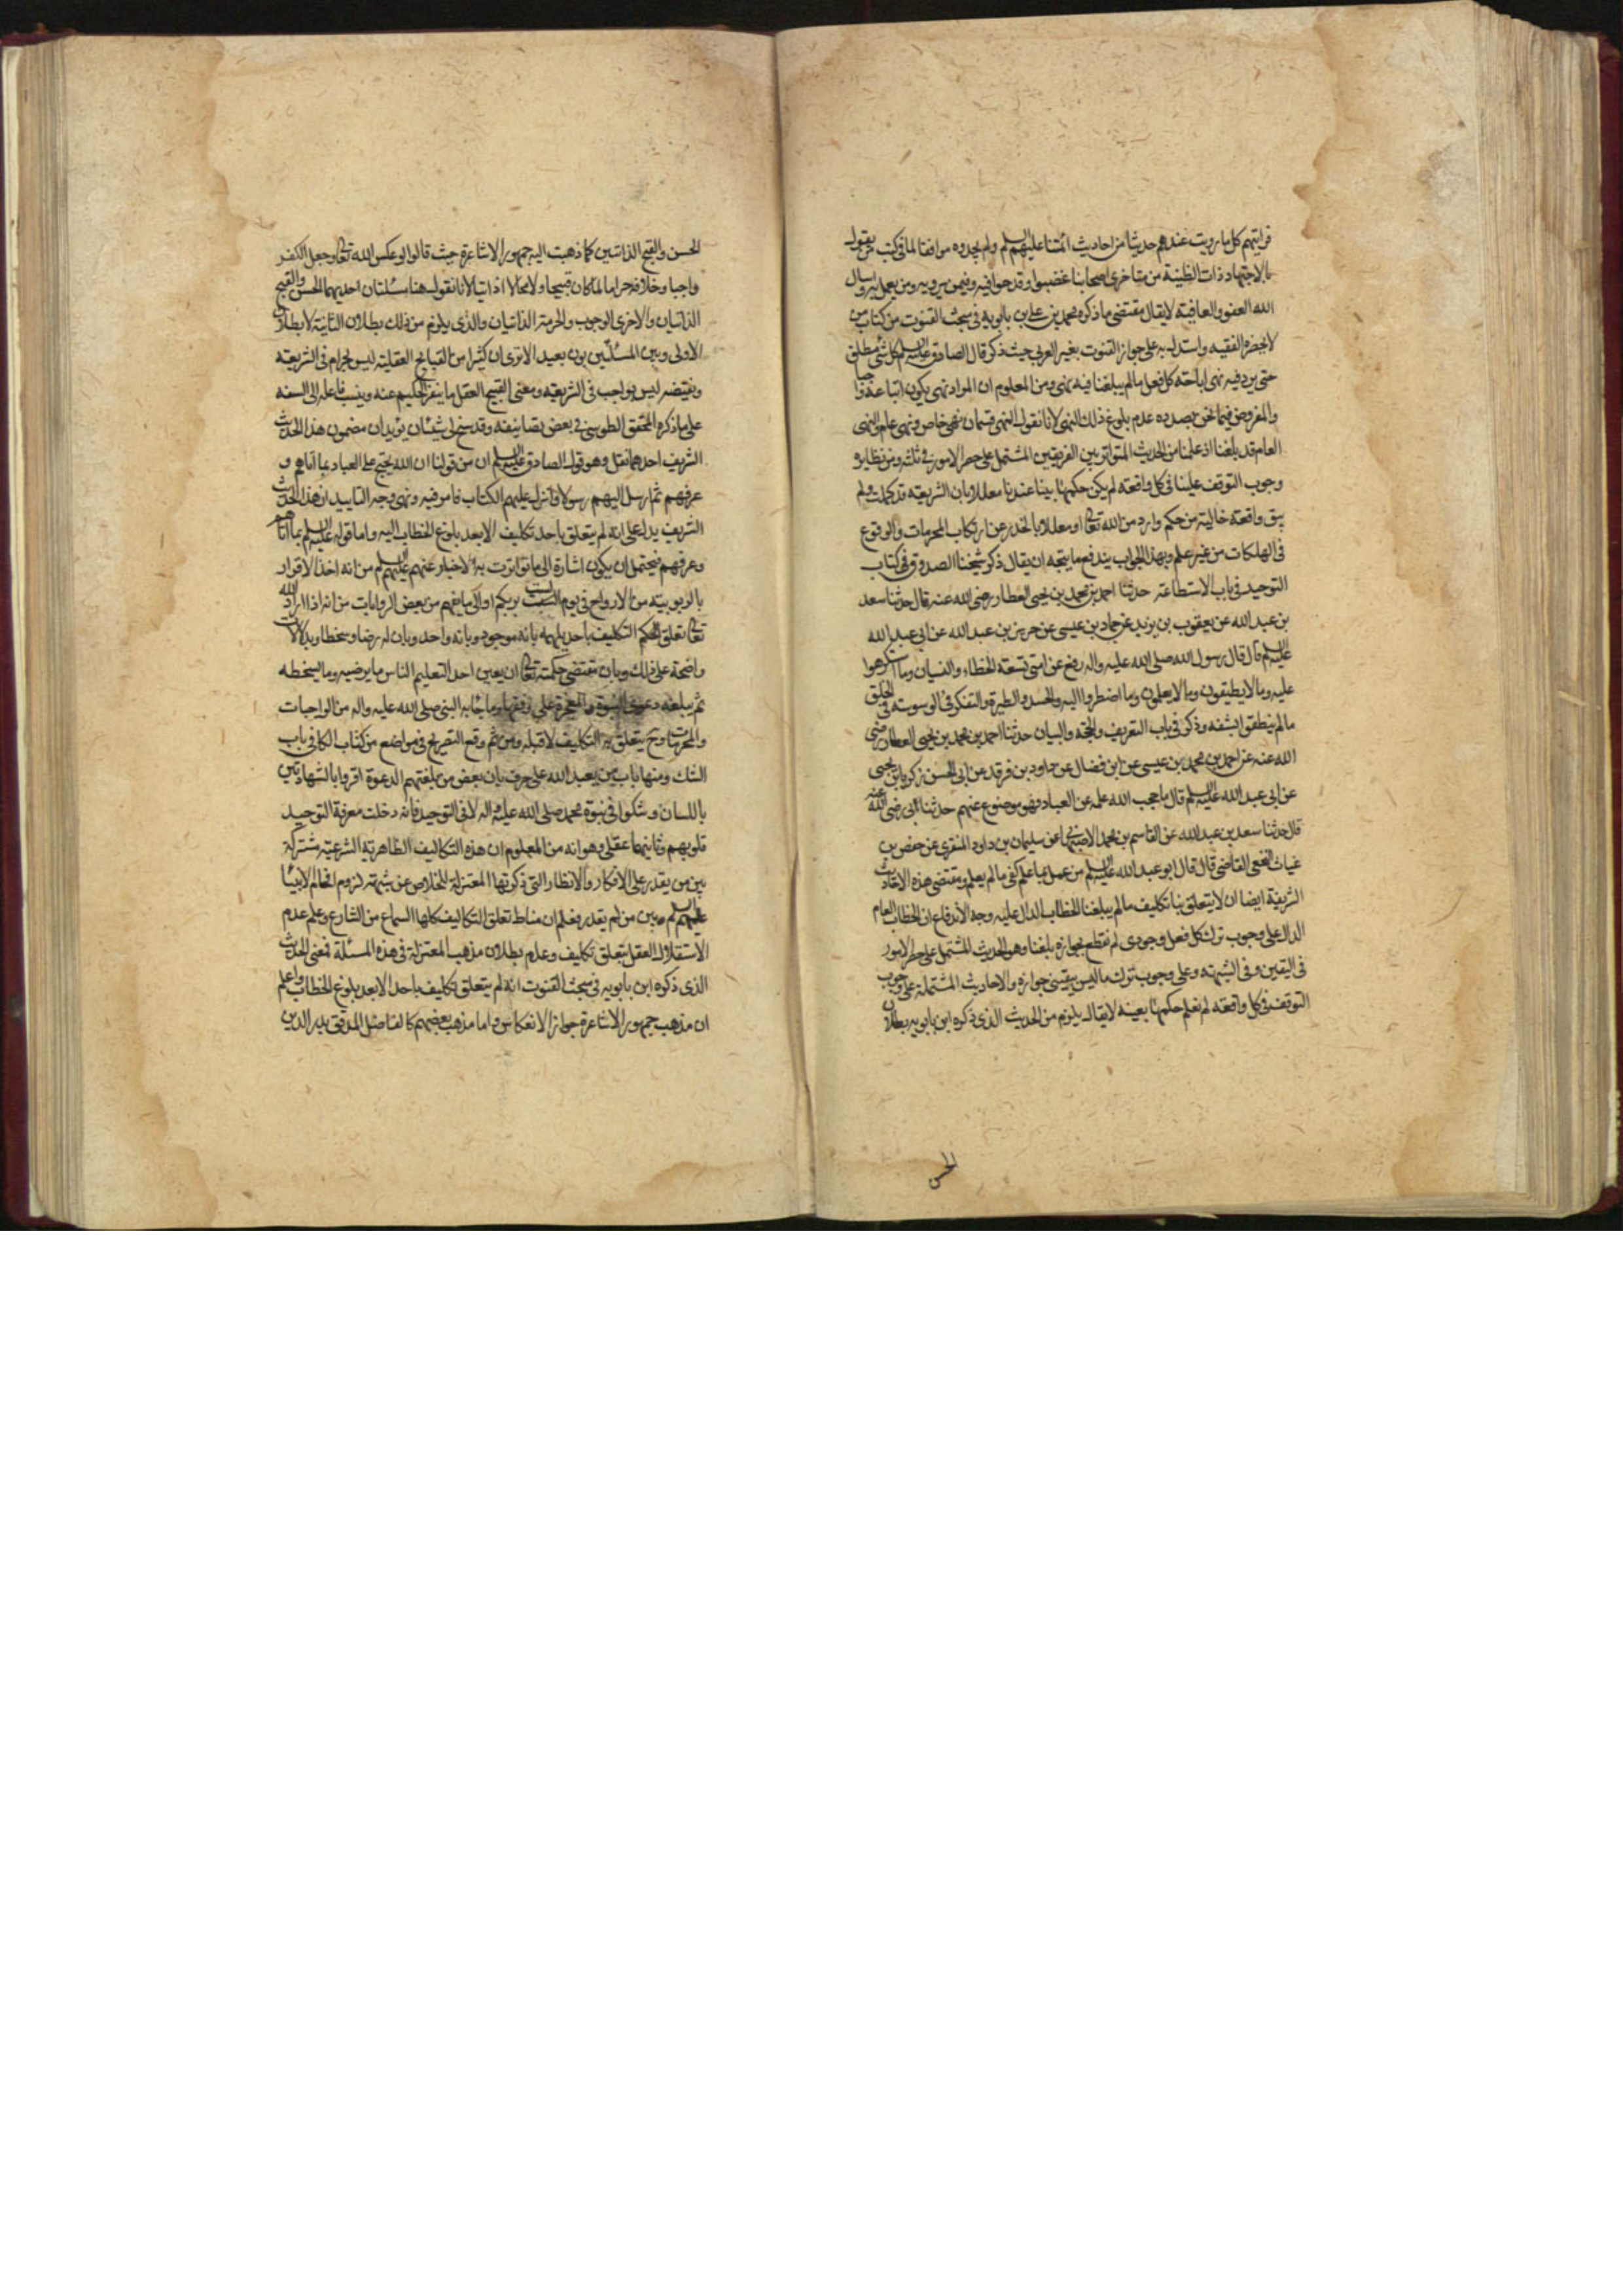 فرايتهم كل ما رويت عندهم حديثا من احاديث ائمتنا عليهم السلم ولم يجدوه موافقا لما في كتب من يقول
بالاجتهادات الظنية من متاخرى اصحابنا غضبوا وقدحوا فيه وفيمن يرويه ومن يعمل به ونسال
الله العفو والعافية لا يقال مقتضى ما ذكره محمد بن على بن بابويه في مبحث القنوت من كتاب من
لا يحضره الفقيه واستدل به على جواز القنوت بغير العربي حيث ذكر قال الصادق عليه السلم كل شئ مطلق
حتى يرد فيه نهى اباحة كل فعل ما لم يبلغنا فيه نهى ومن المعلوم ان المراد نهى يكون اتباعه واجبا
والمفروض فيما نحن بصدده عدم بلوغ ذلك النهى لانا نقول النهى قسمان نهى خاص ونهى عام والنهى
العام قد بلغنا اذ علمنا من الحديث المتواتر بين الفريقين المشتمل على حصر الامور في ثلث ومن نظايره
وجوب التوقف علينا في كل واقعة لم يكن حكمها بينا عندنا معللا بان الشريعة قد كملت ولم
يبق واقعة خالية من حكم وارد من الله تعالى او معللا بالحذر عن ارتكاب المحرمات والوقوع
في الهلكات من غير علم وبهذا الجواب يندفع ما يتجه ان يقال ذكر شيخنا الصدوق في كتاب
التوحيد في باب الاستطاعة حدثنا احمد بن محمد بن يحيى العطار رضى الله عنه قال حدثنا سعد
بن عبد الله عن يعقوب بن يزيد عن حماد بن عيسى عن حريز بن عبد الله عن ابى عبد الله
عليه السلم قال قال رسول الله صلى الله عليه واله رفع عن امتى تسعة الخطاء والنسيان وما اكرهوا
عليه وما لا يطيقون وما لا يعلمون وما اضطروا اليه والحسد والطيرة والتفكر في الوسوسة في الخلق
ما لم ينطقوا بشفه وذكر في باب التعريف والحجة والبيان حدثنا احمد بن محمد بن يحيى العطار رضى
الله عنه عن احمد بن محمد بن عيسى عن ابن فضال عن داود بن فرقد عن ابى الحسن زكريا بن يحيى
عن ابى عبد الله عليه السلم قال ما حجب الله علمه عن العباد فهو موضوع عنهم حدثنا ابى رضى الله عنه
قال حدثنا سعد بن عبد الله عن القاسم بن محمد الاصبهانى عن سليمان بن داود المنقرى عن حفص بن
غياث النخعى القاضى قال قال ابو عبد الله عليه السلم من عمل بما علم كفى ما لم يعلم ومقتضى هذه الاحاديث
الشريفة ايضا ان لا يتعلق بنا تكليف ما لم يبلغنا الخطاب الدال عليه وجه الاندفاع ان الخطاب العام
الدال على وجوب ترك كل فعل وجودى لم نقطع بجوازه بلغنا وهو الحديث المشتمل على حصر الامور
في اليقين وفي الشبهة وعلى وجوب ترك ما ليس بيقينى جوازه والاحاديث المشتملة على وجوب
التوقف في كل واقعة لم نعلم حكمها بعينه لا يقال يلزم من الحديث الذى ذكره ابن بابويه بطلان
الحسن
الحسن والقبح الذاتيين كما ذهبت اليه جمهور الاشاعرة حيث قالوا لو عكس الله تعالى وجعل الكفر
واجبا وخلافه حراما لما كان قبيحا ولا محالا اذاتيا لانا نقول هنا مسئلتان احديهما الحسن والقبح
الذاتيان والاخرى الوجوب والحرمة الذاتيان والذى يلزم من ذلك بطلان الثانية لا بطلان
الاولى وبين المسئلتين بون بعيد الا ترى ان كثيرا من القبايح العقلية ليس بحرام في الشريعة
ونقيضه ليس بواجب في الشريعة ومعنى القبيح العقلى ما ينفر الحكيم عنه وينسب فاعله الى السفه
على ما ذكره المحقق الطوسى في بعض تصانيفه وقد سنح لى شيئان يؤيدان مضمون هذا الحديث
الشريف احدهما نقل وهو قول الصادق عليه السلم ان من قولنا ان الله يحتج على العباد بما اتاهم و
عرفهم ثم ارسل اليهم رسولا وانزل عليهم الكتاب فامر فيه ونهى وجه التاييد ان هذا الحديث
الشريف يدل على انه لم يتعلق باحد تكليف الا بعد بلوغ الخطاب اليه واما قوله عليه السلم بما اتاهم
وعرفهم فيحتمل ان يكون اشارة الى ما تواترت به الاخبار عنهم عليهم السلم من انه اخذ الاقرار
بالربوبية من الارواح في يوم الست بربكم او الى ما يفهم من بعض الروايات من انه اذا اراد الله
تعالى تعلق الحكم التكليف باحد يلهمه بانه موجود وبانه واحد وبان له رضا وسخطا وبدلالات
واضحة على ذلك وبان مقتضى حكمته تعالى ان يعين احدا لتعليم الناس ما يرضيه وما يسخطه
ثم يبلغه دعوى النبوة والمعجزة على وفقها وما جاء به النبى صلى الله عليه واله من الواجبات
والمحرمات وح يتعلق به التكاليف لا قبله ومن ثم وقع التصريح في مواضع من كتاب الكافى باب
الشك ومنها باب من يعبد الله على حرف بان بعض من بلغتهم الدعوة اقروا بالشهادتين
باللسان وشكوا في نبوة محمد صلى الله عليه واله لا في التوحيد فانه دخلت معرفة التوحيد
قلوبهم وثانيهما عقلى وهو انه من المعلوم ان هذه التكاليف الظاهرية الشرعية مشتركة
بين من يقدر على الافكار والانظار التى ذكرتها المعتزلة للخلاص عن شبهة لزوم افحام الانبيا
عليهم السلم وبين من لم يقدر فعلم ان مناط تعلق التكاليف كلها السماع من الشارع وعلم عدم
الاستقلال العقل بتعلق تكاليف وعلم بطلان مذهب المعتزلة في هذه المسئلة فمعنى الحديث
الذى ذكره ابن بابويه في مبحث القنوت انه لم يتعلق تكاليف باحد الا بعد بلوغ الخطاب واعلم
ان مذهب جمهور الاشاعرة جواز الانعكاس واما مذهب بعضهم كالفاضل المدقق بدر الدين